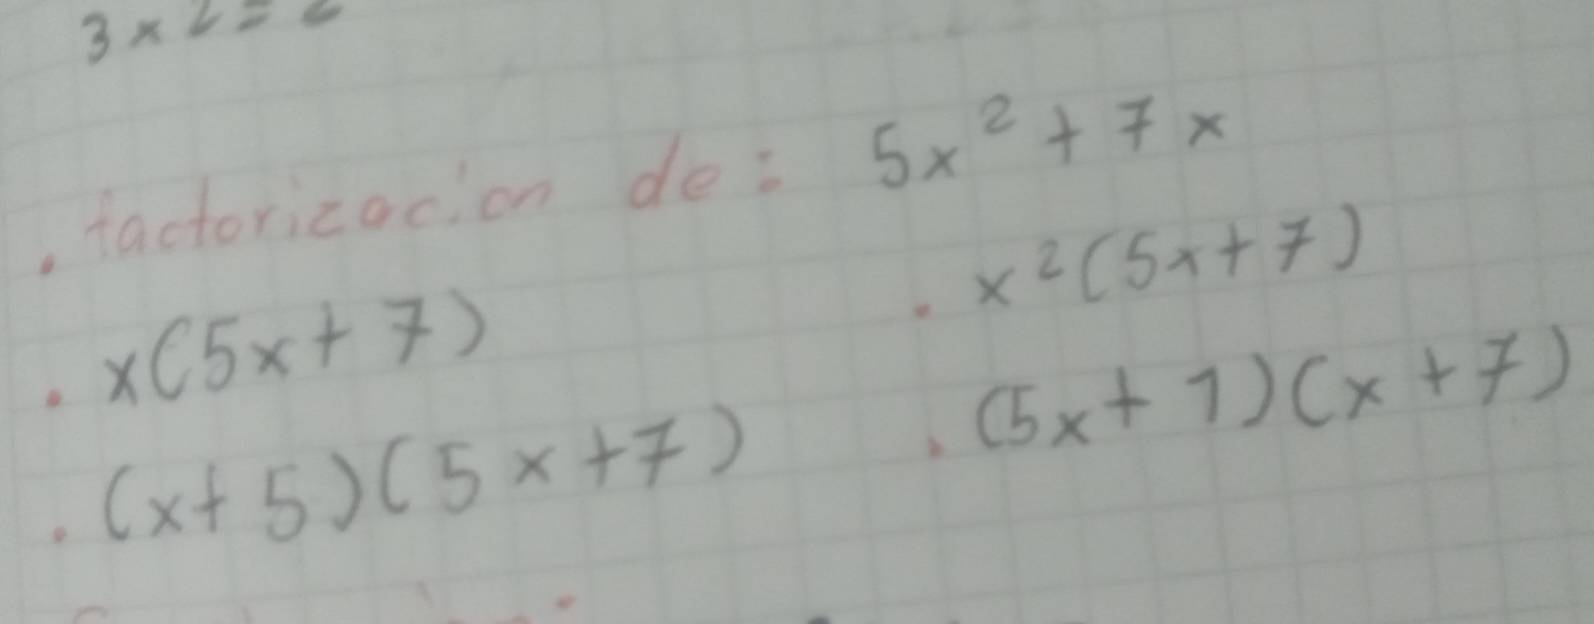 3 x 2 =
. factorización de: 5x² + 7x
. x(5x+7)
. x²(5x+7)
. (x+5)(5x+7)
. (5x+1)(x+7)